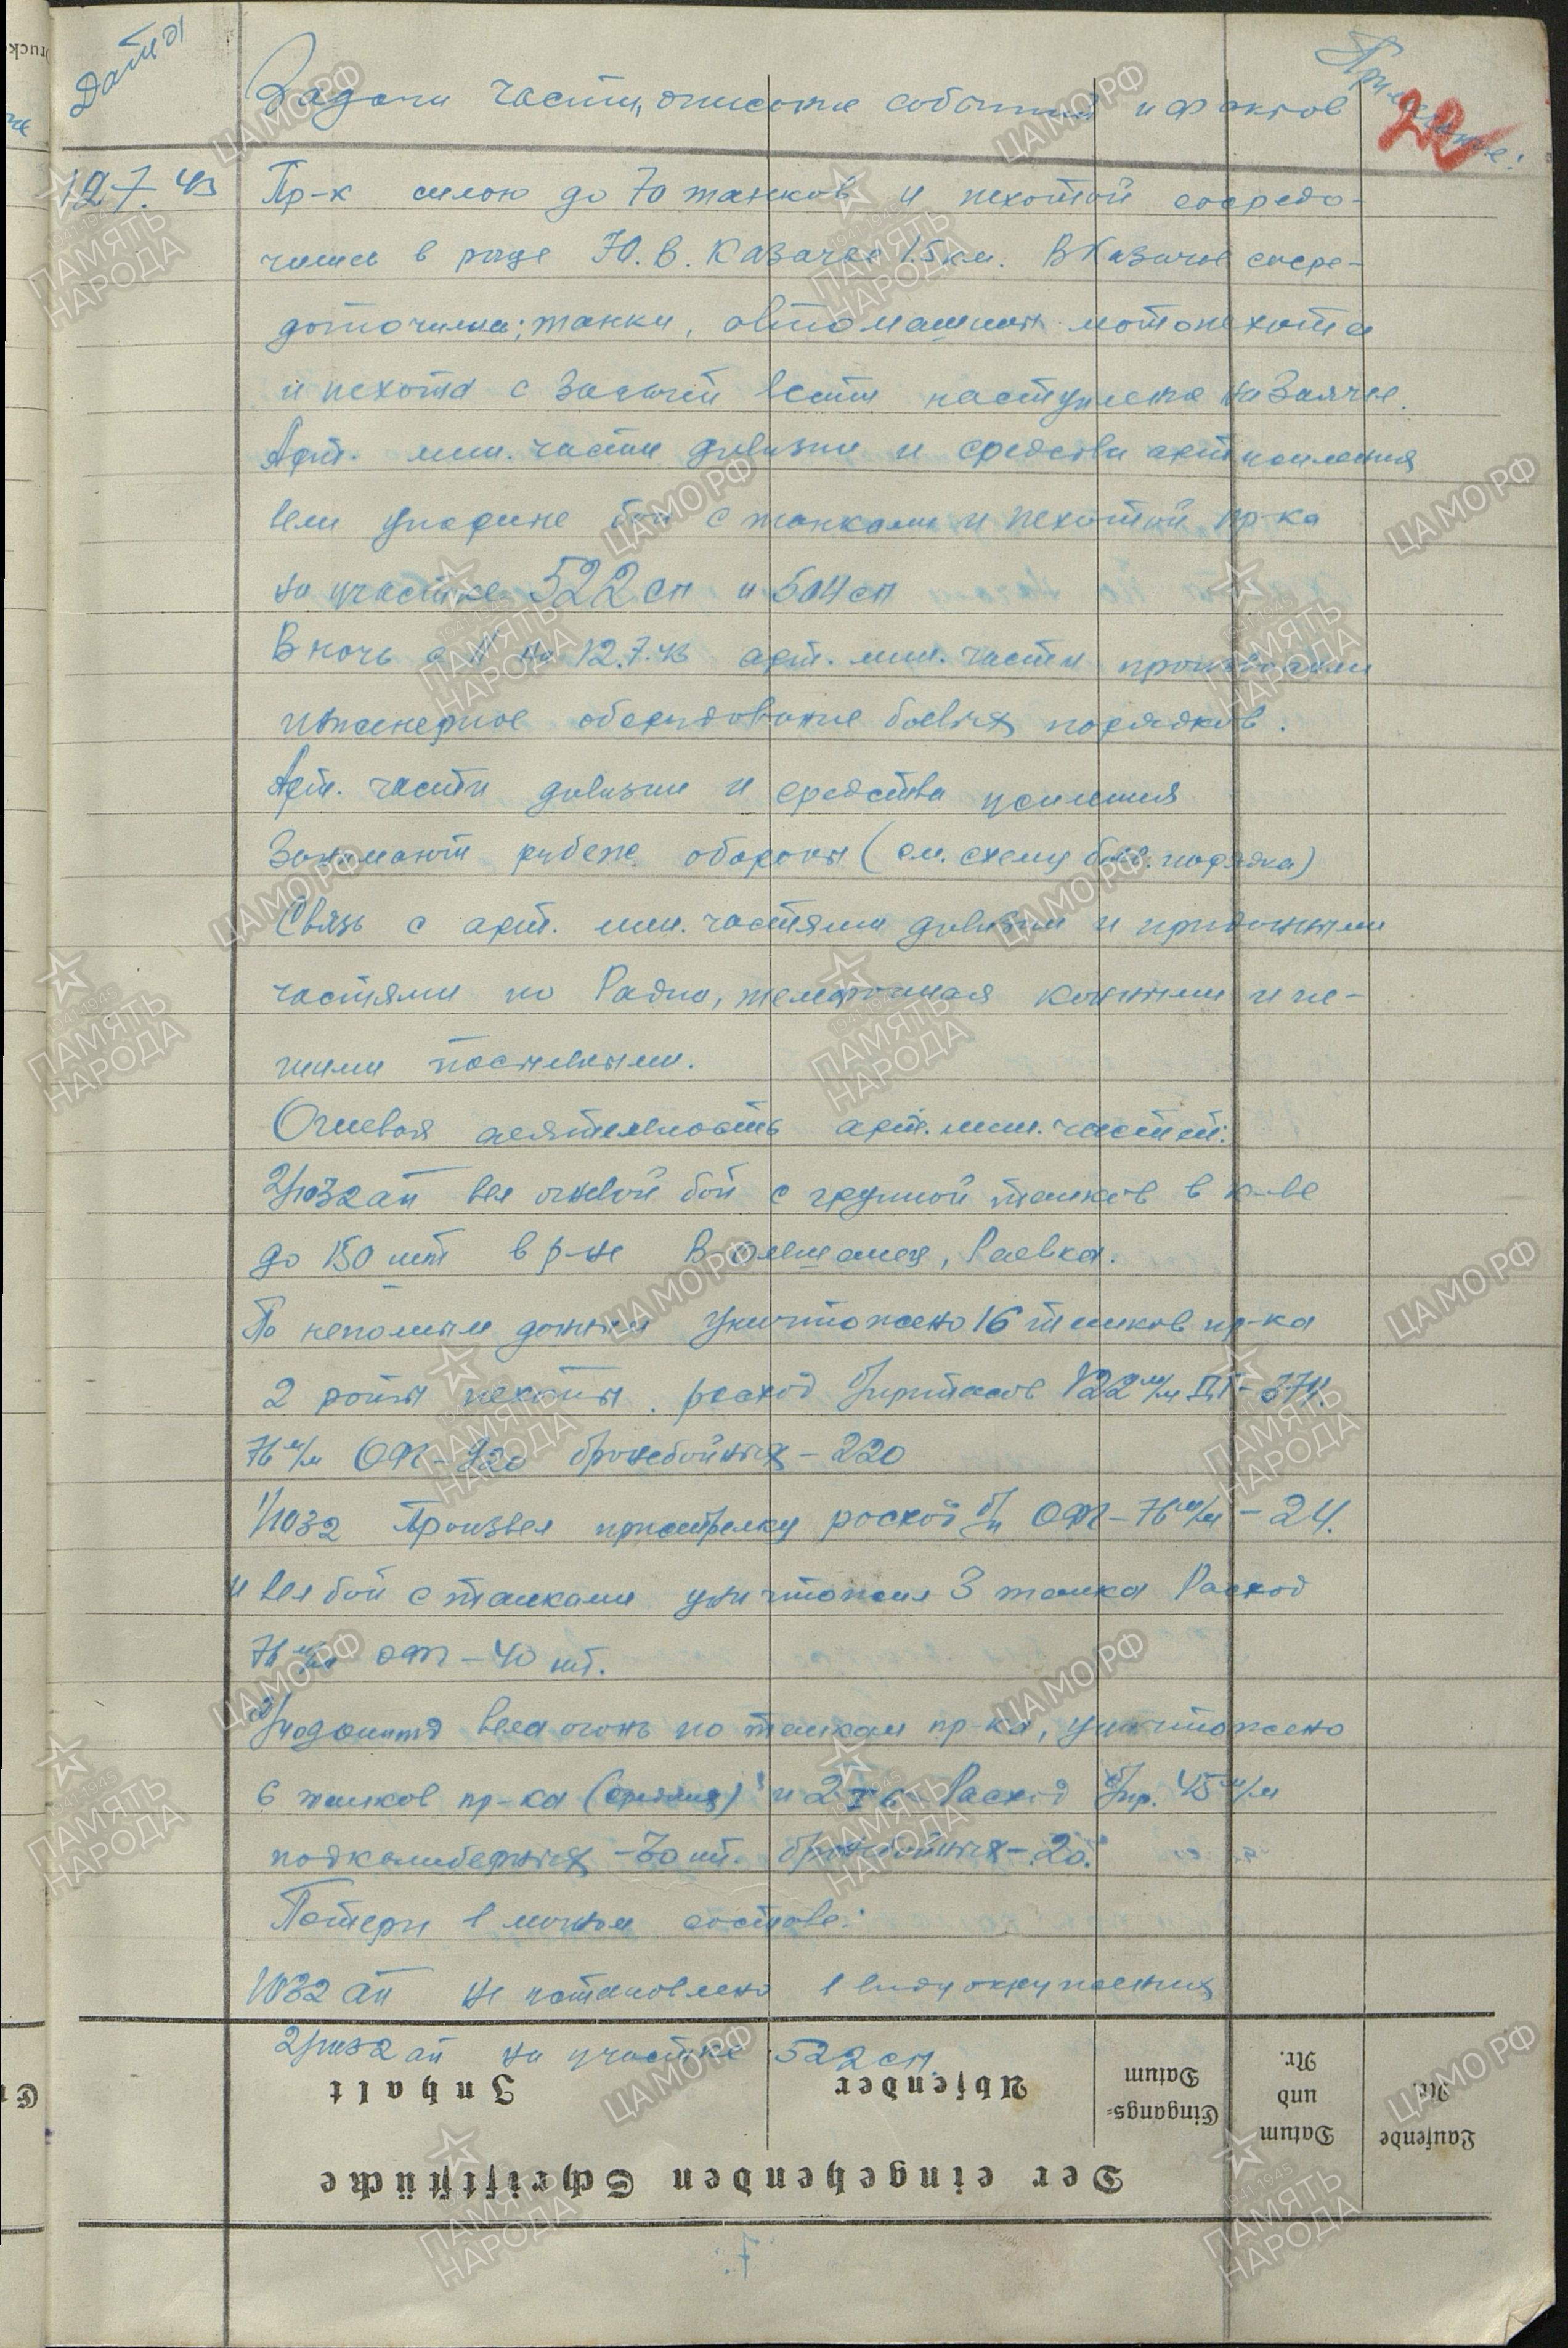 Даты
Задачи части, описание событий и фактов
Примечание:
22
12.7.43 Пр-к силою до 70 танков и пехотой сосредо-
чился в роще Ю.В. Казачье 1.5 км. В Казачье сосре-
доточились; танки, автомашины мотопехота
и пехота с задачей вести наступление на Заячье.
Арт. мин. части дивизии и средства артусиления
вели упорные бои с танками и пехотой пр-ка
на участке 522 сп и 504 сп
В ночь с 11 на 12.7.43 арт. мин. части производили
инженерное оборудование боевых порядков.
Арт. части дивизии и средства усиления
Занимают рубеж обороны (см. схему боев. порядка)
Связь с арт. мин. частями дивизии и приданными
частями по Радио, телефонная конными и пе-
шими посыльными.
Огневая деятельность арт. мин. частей:
2/1032 ап вел огневой бой с группой танков в к-ве
до 150 шт в р-не В. Ольшанец, Раевка.
По неполным данным уничтожено 16 танков пр-ка
2 роты пехоты. расход б/припасов 122 м/м - 374.
76 м/м ОФГ - 920 бронебойных - 220
1/1032 Произвел пристрелку расход б/п ОФГ - 76 м/м - 24.
и вел бой с танками уничтожил 3 танка Расход
76 м/м ОФГ - 40 шт.
вела огонь по танкам пр-ка, уничтожено
6 танков пр-ка (средних) и 2 Расход б/пр. 45 м/м
подкалиберных - 70 шт. бронебойных - 20.
Потери в личном составе:
1032 ап не установлено в виду окружения
2/1032 ап на участке 522 сп
Inhalt
Absender
Eingangs-
Datum
Datum
und
Nr.
Laufende
Nr.
Der eingehenden Schriftstücke
7
ЦАМО РФ
ПАМЯТЬ
НАРОДА